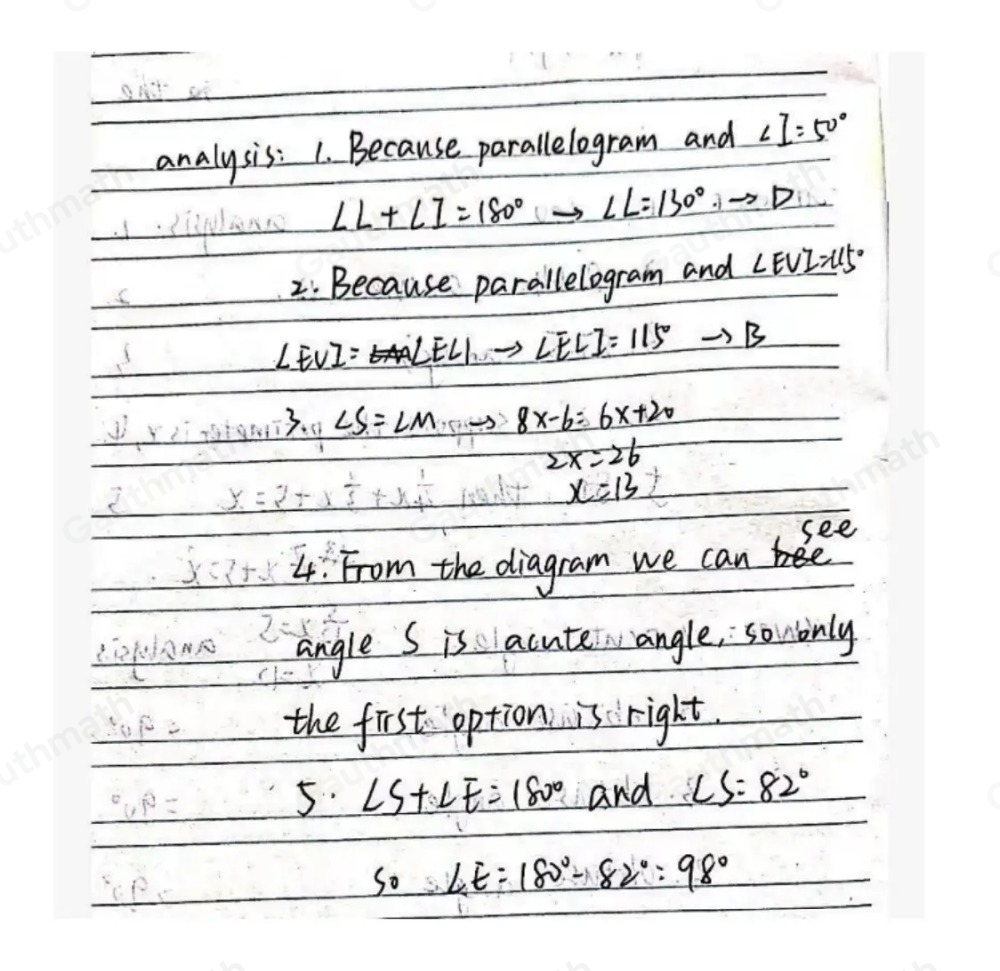 analysis: 1. Because parallelogram and ∠I=50°
∠L+∠I=180° → ∠L=130°. → D
2. Because parallelogram and ∠EVI=115°
∠EVI=∠ELI → ∠ELI=115° → B
3. ∠S=∠M → 8x-6=6x+20
2x=26
x=13
see
4. From the diagram we can
angle S is acute angle, so only
the first option is right.
5. ∠S+∠E=180° and ∠S=82°
so ∠E=180°-82°=98°
Gauthmath